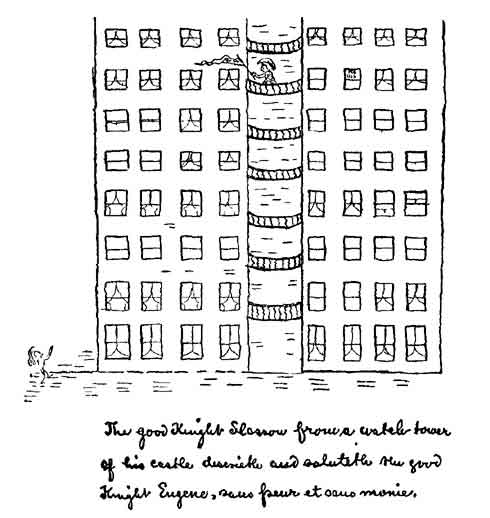 The good Knight Slosson from a watch tower
of his castle and saluteth the good
Knight Eugene, sans peur et sans monie.